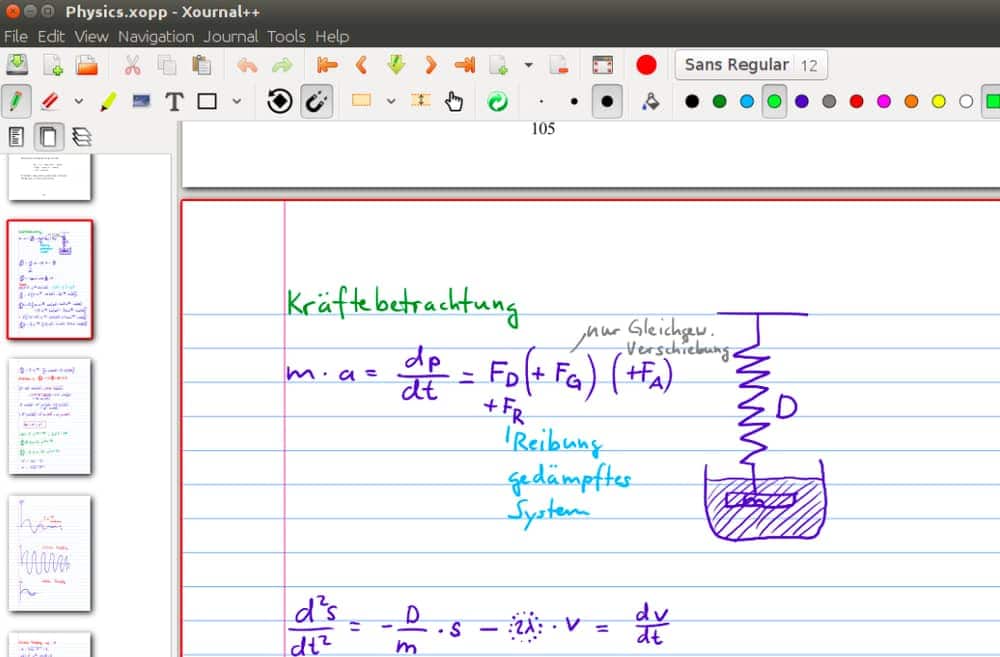 Physics.xopp - Xournal++
File Edit View Navigation Journal Tools Help
Sans Regular 12
105
Kräftebetrachtung
nur Gleichgew.
Verschiebung
m · a = dp/dt = F_D (+ F_G) (+F_A)
+F_R
D
Reibung
gedämpftes
System
d²s/dt² = - D/m · s - 2λ · v = dv/dt